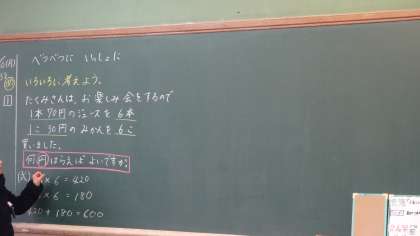 べつべつに いっしょに
いろいろに考えよう。
1
たくみさんは、お楽しみ会をするので
1本70円のジュースを6本
1こ30円のみかんを6こ
買いました。
何円はらえばよいですか
(式) × 6 = 420
× 6 = 180
420 + 180 = 600